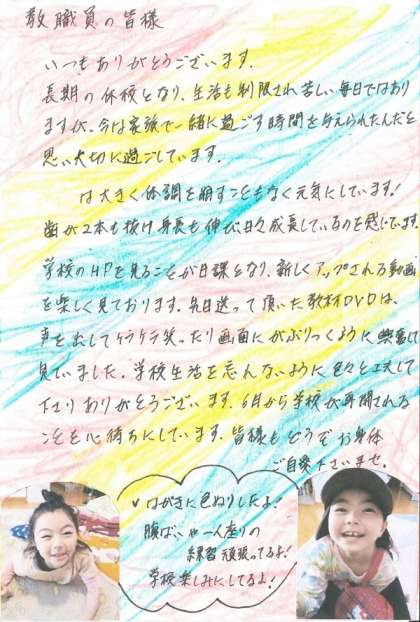 教職員の皆様
いつもありがとうございます。
長期の休校となり、生活も制限され苦しい毎日ではあり
ますが、今は家族で一緒に過ごす時間を与えられたんだと
思い大切に過ごしています。
は大きく体調を崩すこともなく元気にしています!
歯が2本も抜け身長も伸び日々成長しているのを感じています。
学校のHPを見ることが日課となり、新しくアップされる動画
を楽しく見ております。先日送って頂いた教材DVDは、
声を出してケラケラ笑ったり画面にかぶりつくように
見ていました。学校生活を忘れないように色々と工夫して
下さりありがとうございます。6月から学校が再開される
ことを心待ちにしています。皆様もどうぞお身体
ご自愛下さいませ。
はがきに色ぬりしたよ!
腹ばいや一人座りの
練習頑張ってるよ!
学校楽しみにしてるよ!